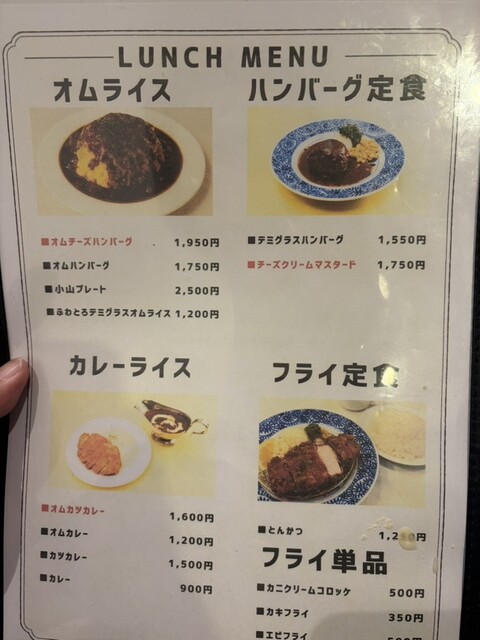 LUNCH MENU
オムライス
■オムチーズハンバーグ 1,950円
■オムハンバーグ 1,750円
■小山プレート 2,500円
■ふわとろデミグラスオムライス 1,200円
ハンバーグ定食
■デミグラスハンバーグ 1,550円
■チーズクリームマスタード 1,750円
カレーライス
■オムカツカレー 1,600円
■オムカレー 1,200円
■カツカレー 1,500円
■カレー 900円
フライ定食
■とんかつ
フライ単品
■カニクリームコロッケ 500円
■カキフライ 350円
■エビフライ 500円